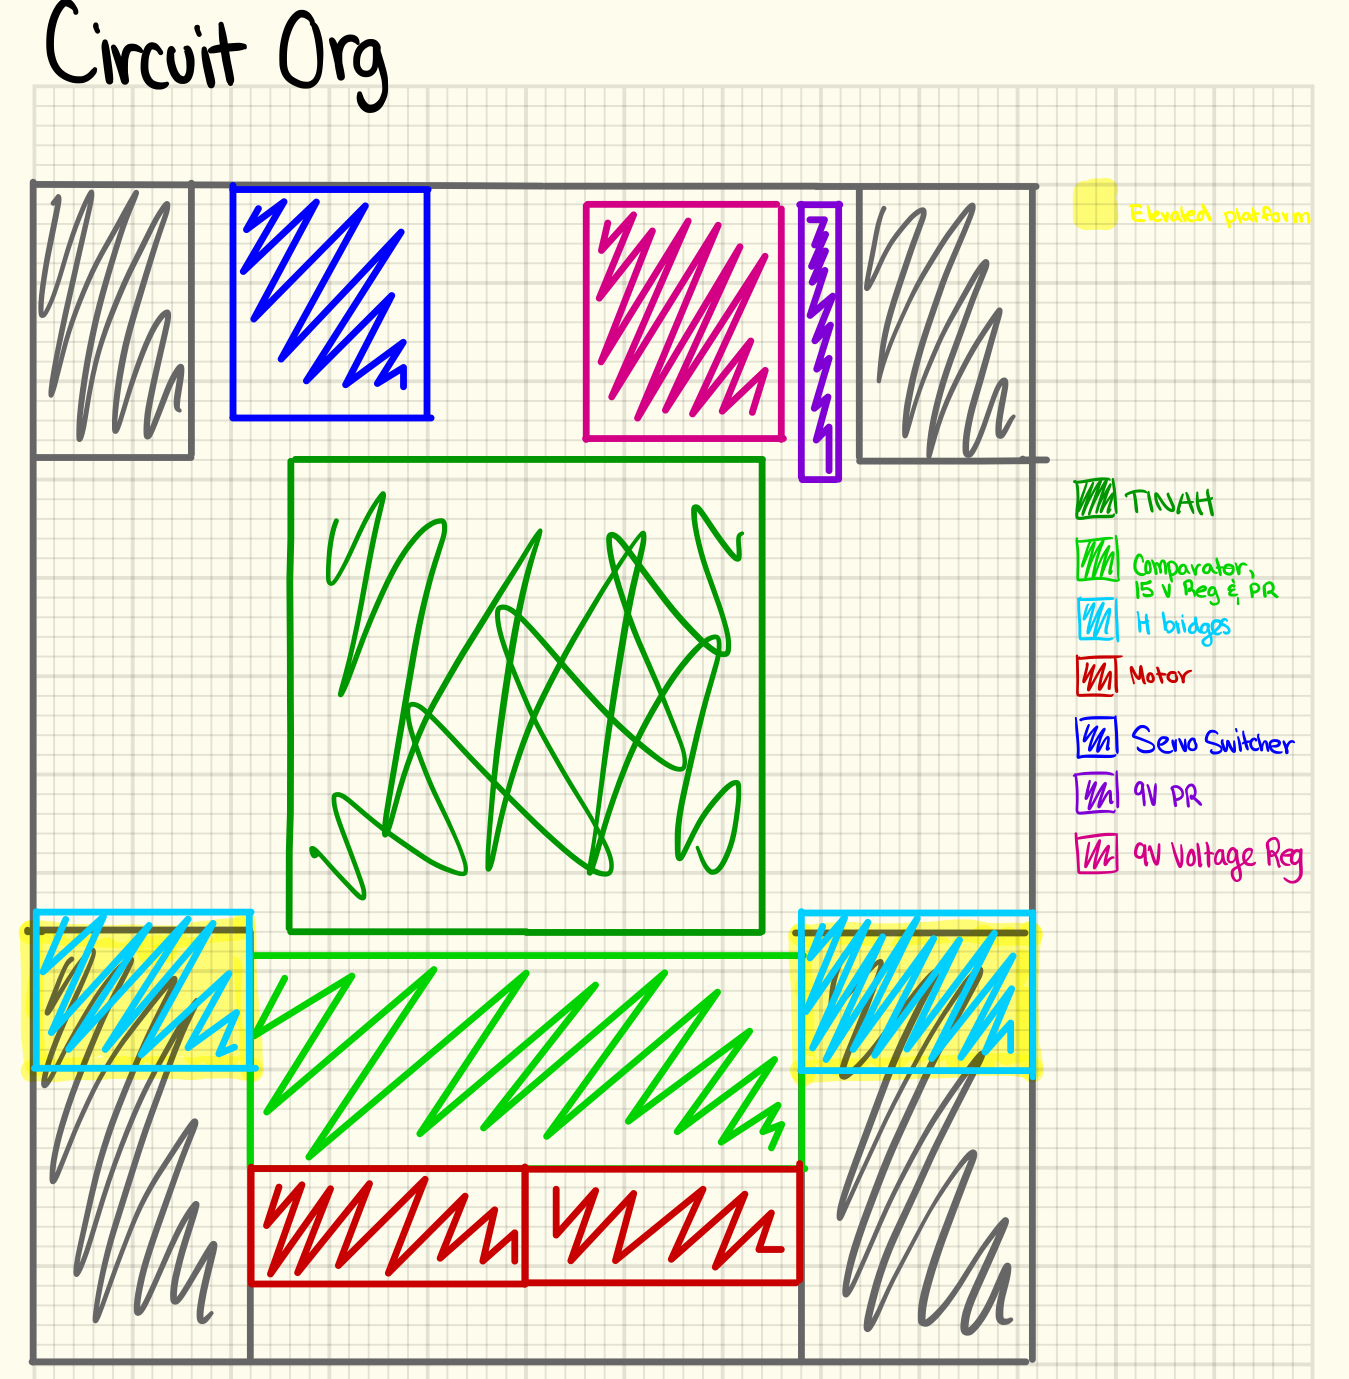 Circuit Org
Elevated platform
TINAH
Comparator,
15 V Reg & PR
H bridges
Motor
Servo Switcher
9V PR
9V Voltage Reg